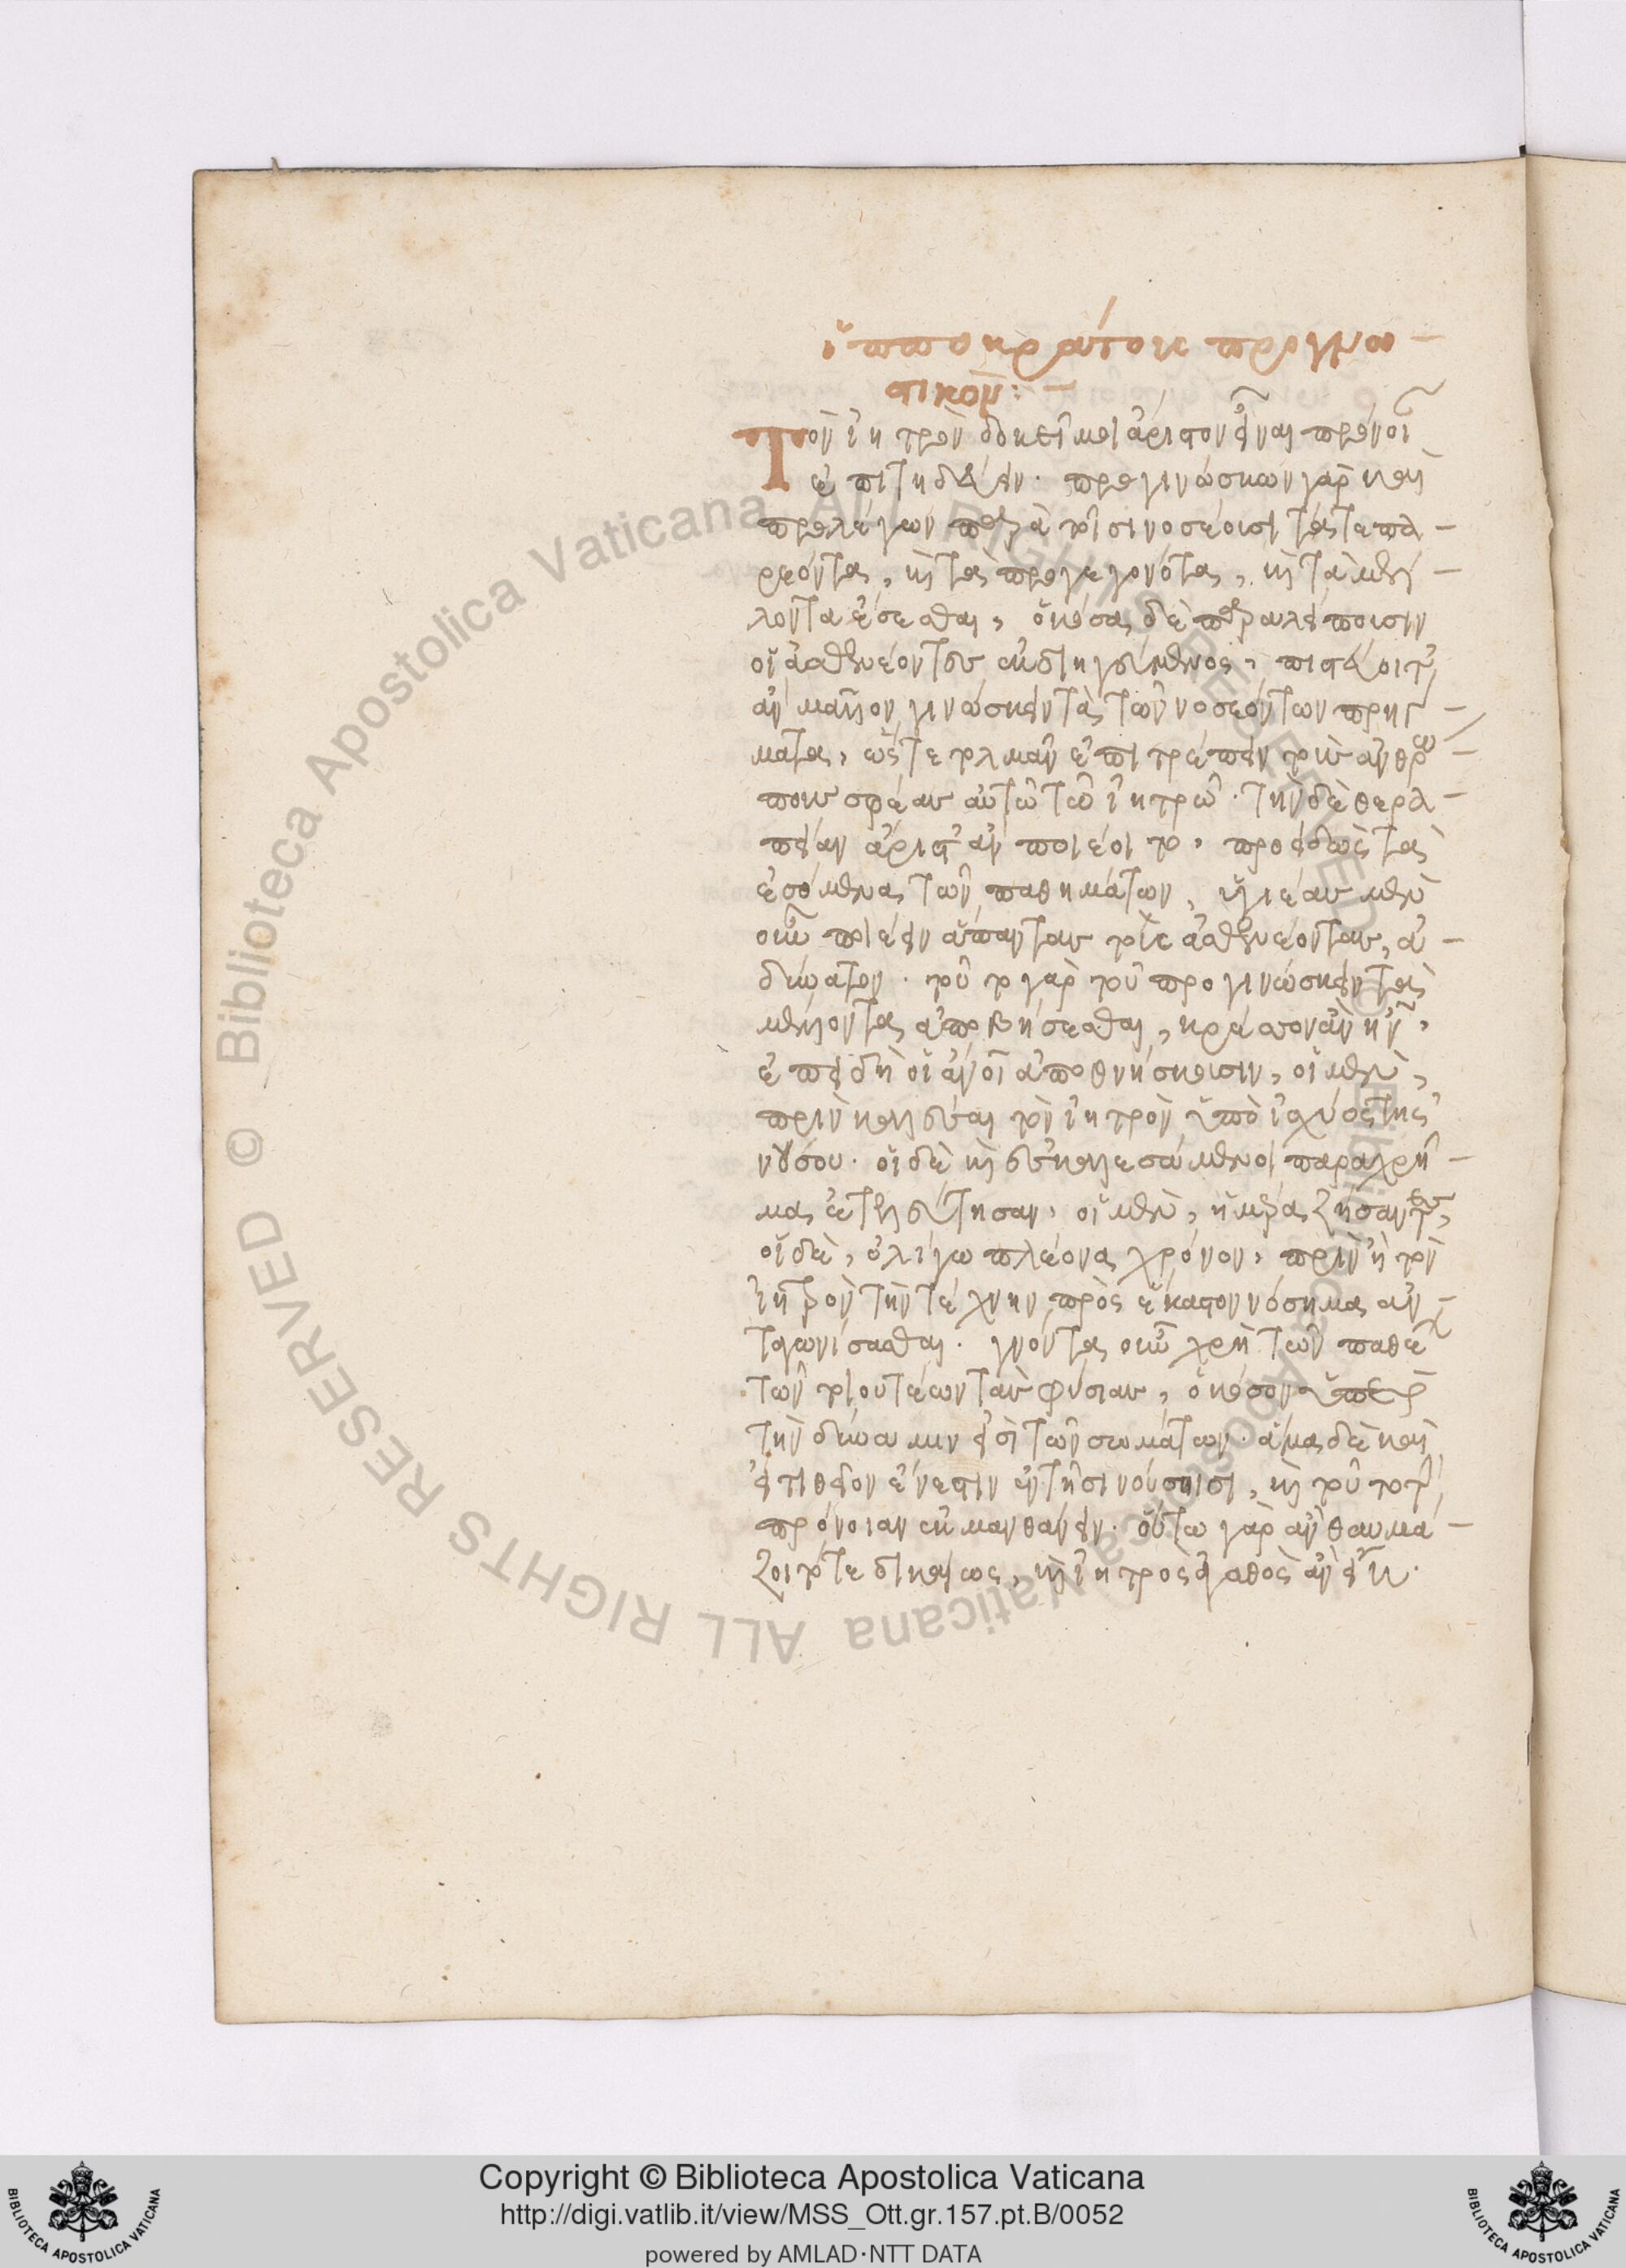 ἱπποκράτους προγνω-
στικόν:-
Τὸν ἰητρὸν δοκεῖ μοι ἄριστον εἶναι πρόνοιαν
ἐπιτηδεύειν. προγινώσκων γὰρ καὶ
προλέγων παρὰ τοῖσι νοσέουσι τά τε πα-
ρεόντα, καὶ τὰ προγεγονότα, καὶ τὰ μέλ-
λοντα ἔσεσθαι, ὁκόσα δὲ παραλείπουσιν
οἱ ἀσθενέοντες ἐκδιηγεύμενος, πιστεύοιτ'
ἂν μᾶλλον γινώσκειν τὰ τῶν νοσεόντων πρήγ-
ματα, ὥστε τολμᾶν ἐπιτρέπειν τοὺς ἀνθρώ-
πους σφέας αὐτῶ τῶ ἰητρῶ. τὴν δὲ θερα-
πείαν ἄριστ' ἂν ποιέοιτο, προειδὼς τὰ
ἐσόμενα τῶν παθημάτων, ὑγιέας μὲν
οὖν ποιέειν ἅπαντας τοὺς ἀσθενέοντας, ἀ-
δύνατον. τοῦτο γὰρ τοῦ προγινώσκειν τὰ
μέλλοντα ἀποβήσεσθαι, κρέσσον ἂν ἦν,
ἐπειδὴ οἱ ἄνοι ἀποθνήσκουσιν, οἱ μὲν,
πρὶν καλέσαι τὸν ἰητρὸν ὑπὸ ἰσχύος τῆς
νούσου. οἱ δὲ καὶ ἐσκαλεσάμενοι παραχρῆ-
μα ἐτελεύτησαν, οἱ μὲν, ἡμέρας ζήσαντες,
οἱ δὲ, ὀλίγω πλέονα χρόνον, πρὶν ἢ τὸν
ἰητρὸν τὴν τέχνην πρὸς ἕκαστον νόσημα ἀν-
ταγωνίσασθαι. γνόντα οὖν χρὴ τῶν παθέ
των τοιουτέων τὰς φύσιας, ὁκόσον ὑπὲρ
τὴν δύναμιν εἰσὶ τῶν σωμάτων. ἅμα δὲ καὶ
εἴ τι θεῖον ἔνεστιν ἐν τῆσι νούσοισι, καὶ τουτου
πρόνοιαν ἐκμανθάνειν. οὕτω γὰρ ἂν θαυμά-
ζοιτό τε δικαίως, καὶ ἰητρὸς ἀγαθὸς ἂν εἴη.
Copyright © Biblioteca Apostolica Vaticana
http://digi.vatlib.it/view/MSS_Ott.gr.157.pt.B/0052
powered by AMLAD·NTT DATA
BIBLIOTECA APOSTOLICA VATICANA
BIBLIOTECA APOSTOLICA VATICANA
© Biblioteca Apostolica Vaticana ALL RIGHTS RESERVED
© Biblioteca Apostolica Vaticana ALL RIGHTS RESERVED